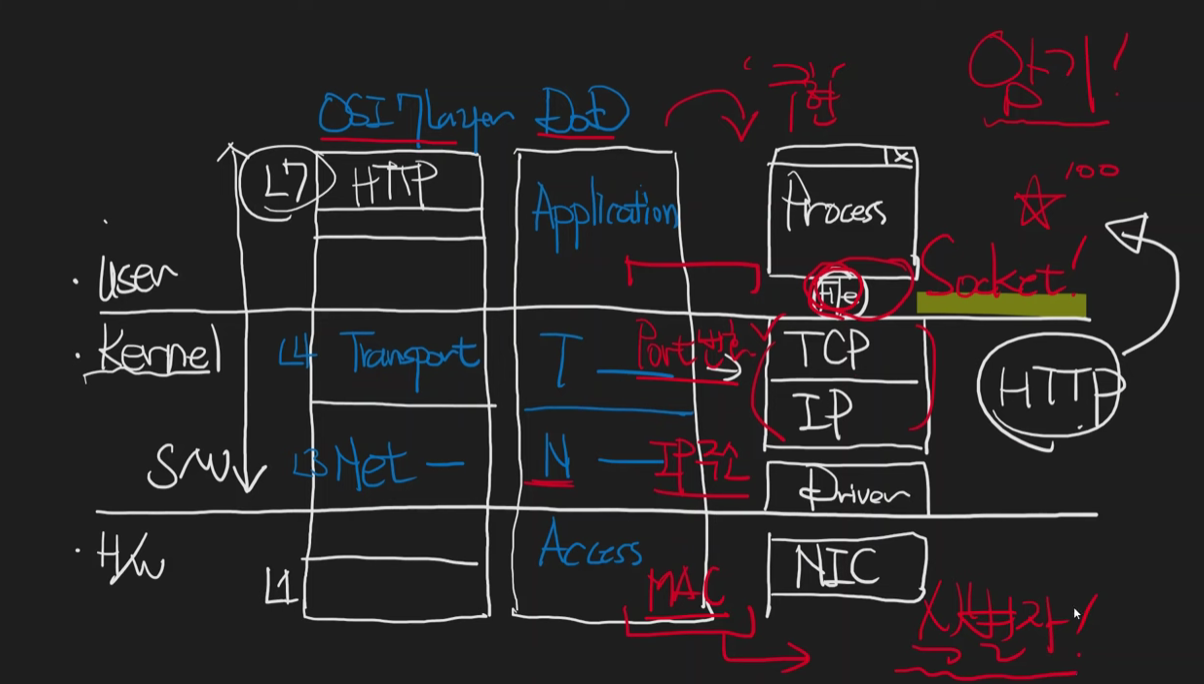 암기!
'구현'
OSI 7 Layer DoD
L7 HTTP
Application
X
Process
☆100
· User
File
Socket!
· Kernel
L4 Transport
T
Port번호
TCP
HTTP
IP
S/W
L3 Net
N
IP주소
Driver
· H/W
Access
NIC
L1
MAC